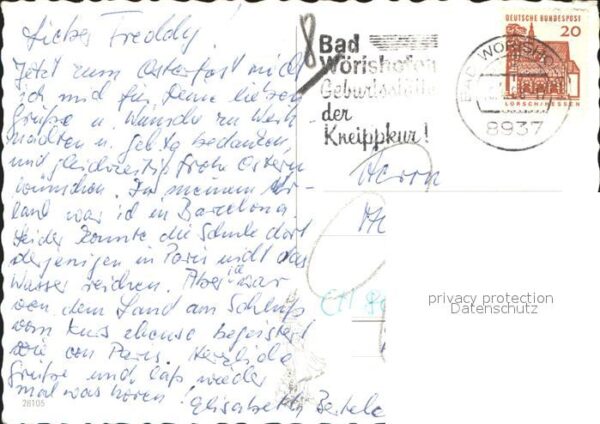 Lieber Freddy,
Jetzt zum Osterfest möcht
ich mich für Deine lieben
Grüße u. Wünsche zu Weih-
nachten u. gebtg bedanken,
und gleichzeitig frohe Ostern
wünschen. In meinem Ur-
laub war ich in Barcelona
Leider konnte die Schule dort
derjenigen in Paris nicht das
Wasser reichen. Aber ich war
von dem Land am Schluß
vom Kurs ebenso begeistert
wie von Paris. Herzliche
Grüße und laß wieder
mal was hören! Elisabeth
28105
Bad
Wörishofen
Geburtsstätte
der
Kneippkur!
DEUTSCHE BUNDESPOST
20
LORSCH/HESSEN
BAD WÖRISHOF
8937
Herrn
privacy protection
Datenschutz